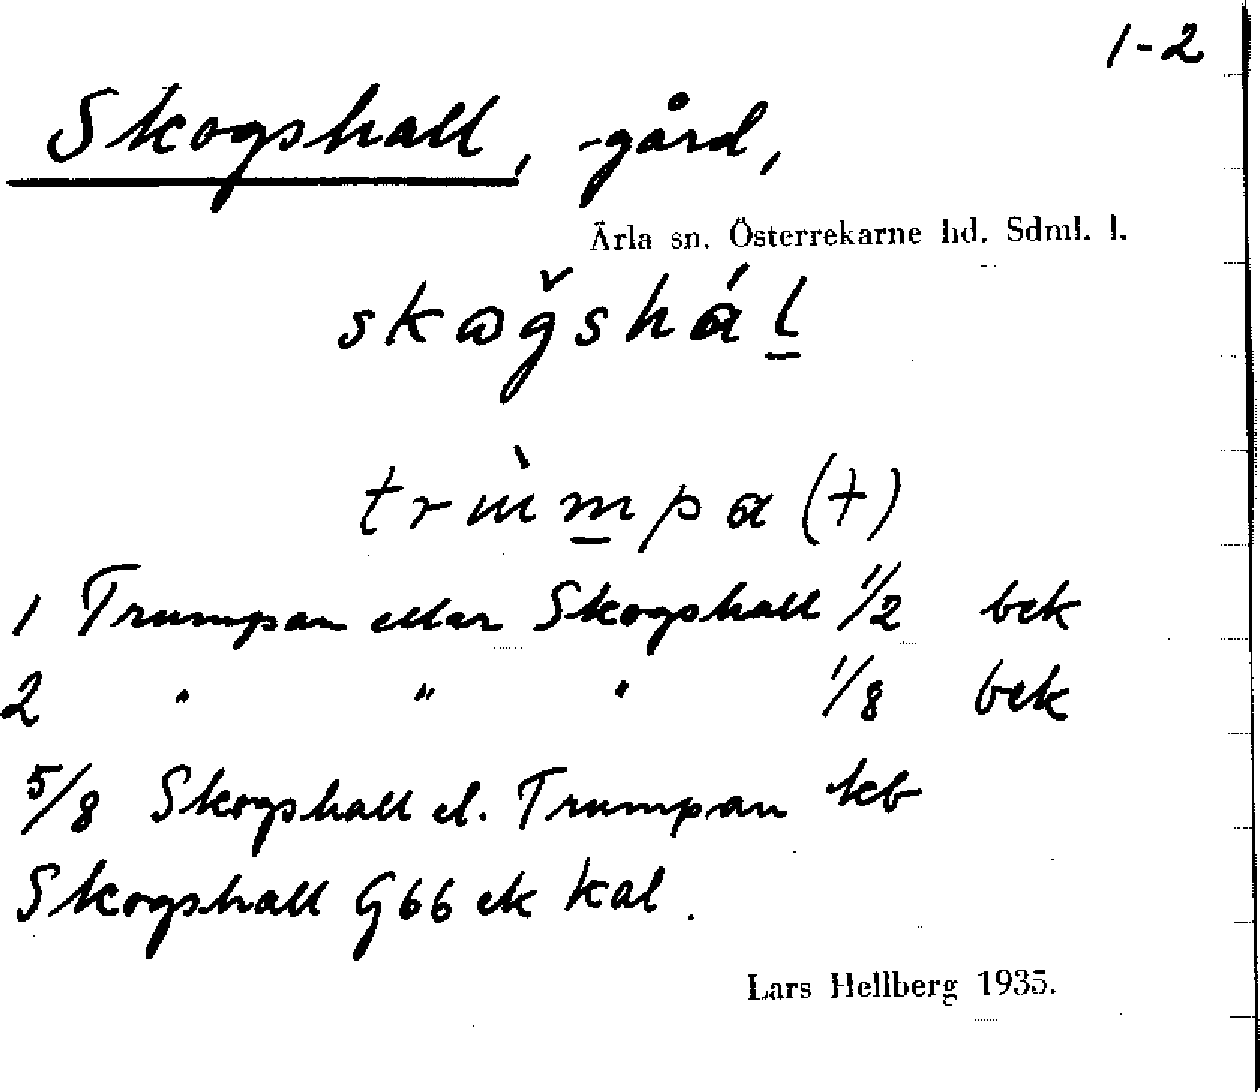 1-2
Skogshall, -gård,
Ärla sn. Österrekarne hd. Sdml. l.
skωğshál̲
trùm̲pa (†)
1 Trumpan eller Skogshall 1/2 bek
2 " " " 1/8 bek
5/8 Skogshall el. Trumpan kb
Skogshall G66 ek kal.
Lars Hellberg 1935.